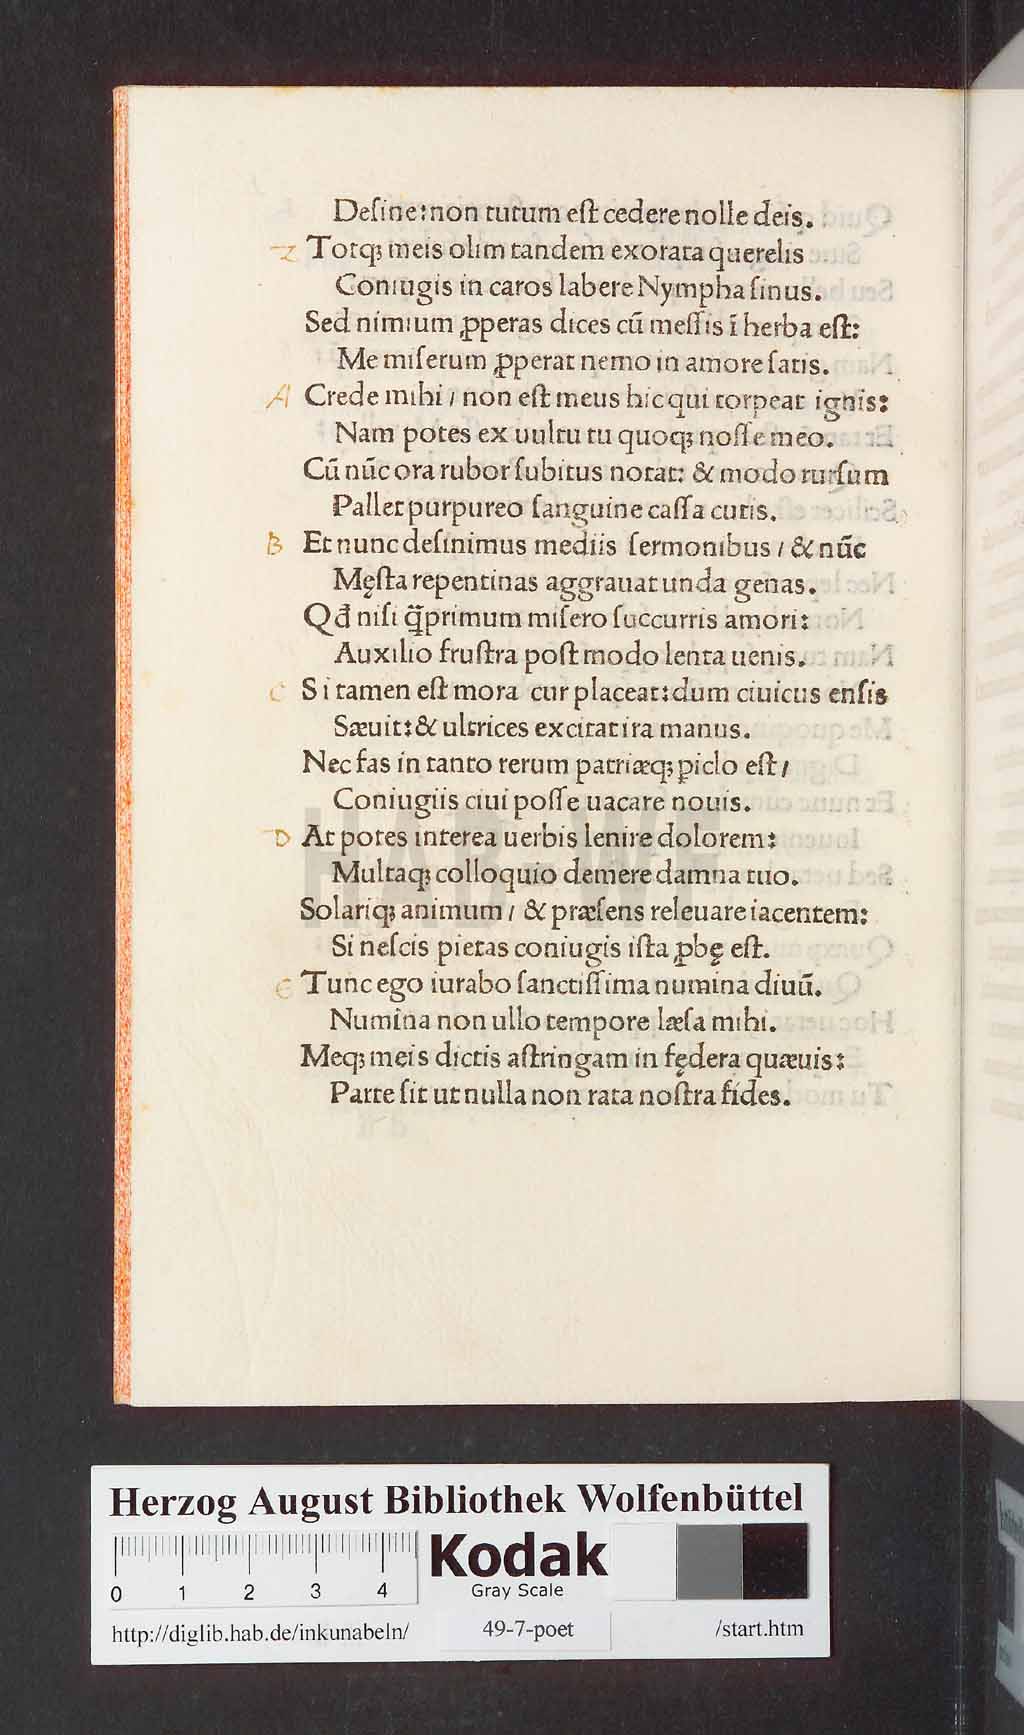 Deſine:non tutum eſt cedere nolle deis.
Z Totq; meis olim tandem exorata querelis
Coniugis in caros labere Nympha ſinus.
Sed nimium ꝓperas dices cū meſſis ī herba eſt:
Me miſerum ꝓperat nemo in amore ſatis.
A Crede mihi / non eſt meus hic qui torpeat ignis:
Nam potes ex uultu tu quoq; noſſe meo.
Cū nūc ora rubor ſubitus notat: & modo rurſum
Pallet purpureo ſanguine caſſa cutis.
B Et nunc deſinimus mediis ſermonibus / & nūc
Męſta repentinas aggrauat unda genas.
Qđ niſi q̄primum miſero ſuccurris amori:
Auxilio fruſtra poſt modo lenta uenis.
C Si tamen eſt mora cur placeat:dum ciuicus enſis
Sæuit:& ultrices excitat ira manus.
Nec fas in tanto rerum patriæq; piclo eſt /
Coniugiis ciui poſſe uacare nouis.
D At potes interea uerbis lenire dolorem:
Multaq; colloquio demere damna tuo.
Solariq; animum / & præſens releuare iacentem:
Si neſcis pietas coniugis iſta ꝓbę eſt.
E Tunc ego iurabo ſanctiſſima numina diuū.
Numina non ullo tempore læſa mihi.
Meq; meis dictis aſtringam in fędera quæuis:
Parte ſit ut nulla non rata noſtra fides.
HAB-WF
Herzog August Bibliothek Wolfenbüttel
0 1 2 3 4
Kodak
Gray Scale
http://diglib.hab.de/inkunabeln/ 49-7-poet /start.htm